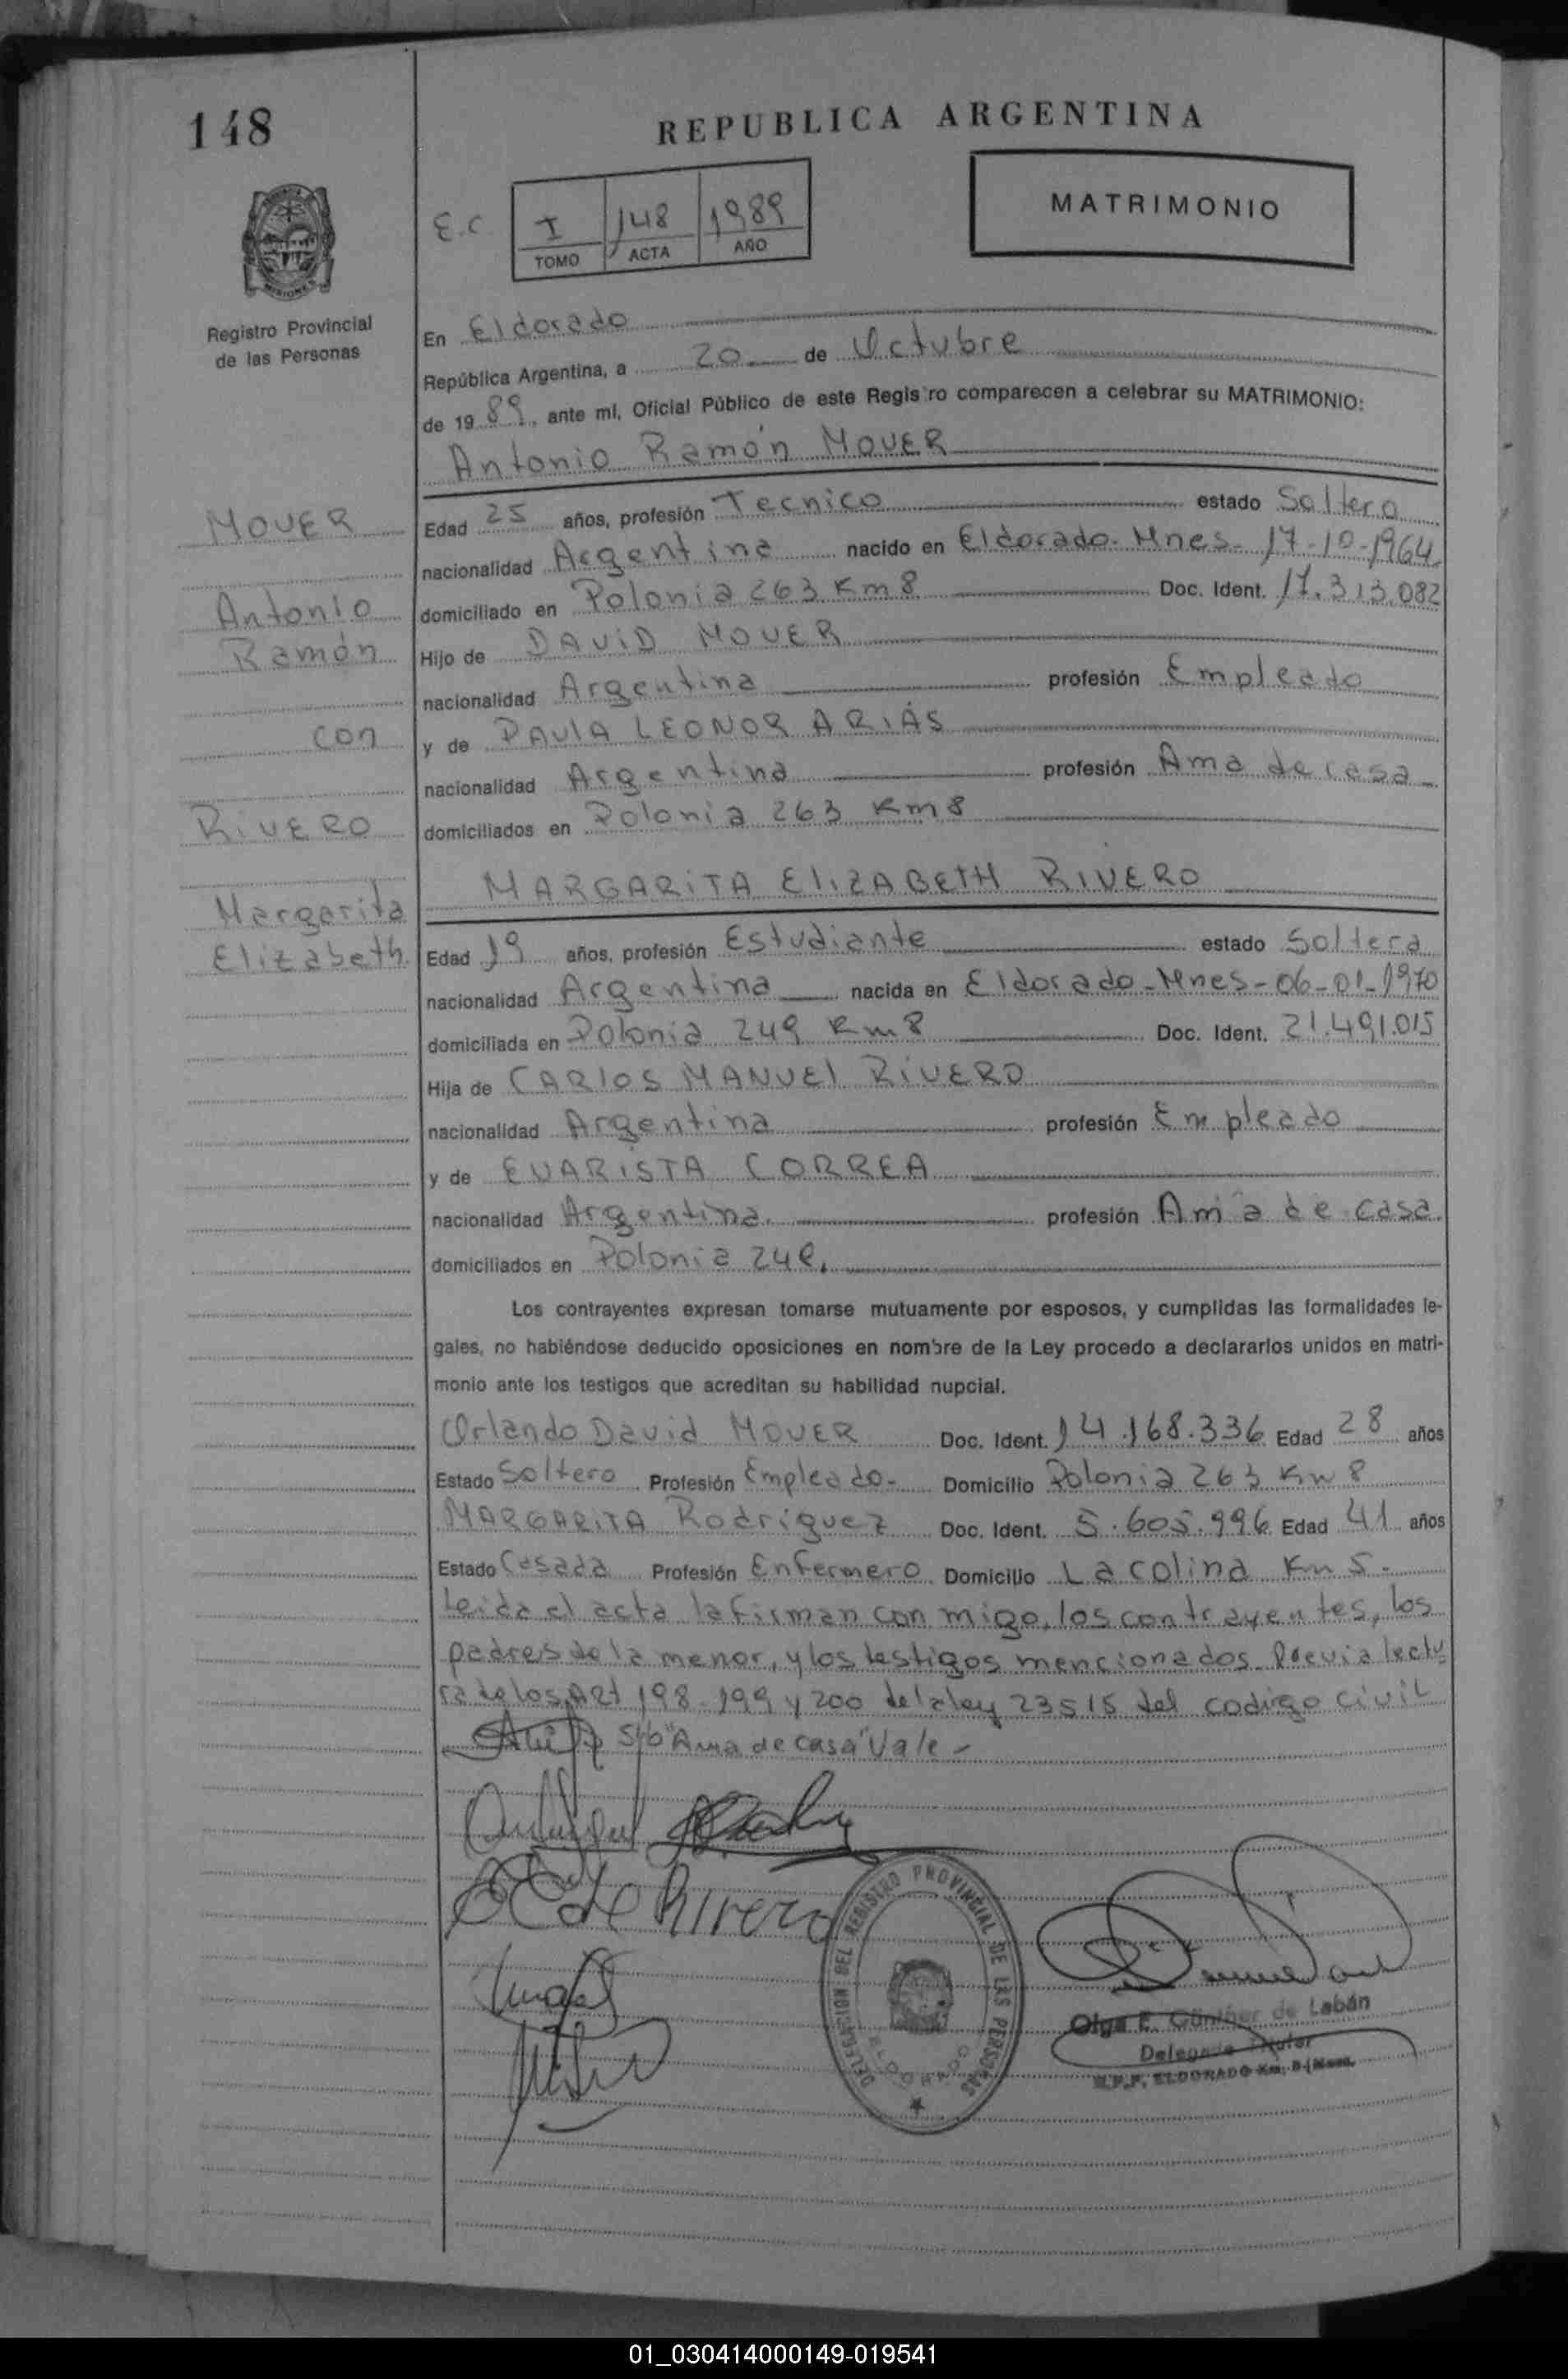 148
REPUBLICA ARGENTINA
E.C.
I 148 1989
TOMO ACTA AÑO
MATRIMONIO
MISIONES
Registro Provincial
de las Personas
En Eldorado
República Argentina, a 20 de Octubre
de 19 89, ante mi, Oficial Público de este Registro comparecen a celebrar su MATRIMONIO:
Antonio Ramón MOVER
MOVER
Antonio
Ramón
con
RIVERO
Margarita
Elizabeth
Edad 25 años, profesión Tecnico estado Soltero
nacionalidad Argentina nacido en Eldorado. Mnes- 17-10-1964
domiciliado en Polonia 263 Km 8 Doc. Ident. 17.313.082
Hijo de DAVID MOVER
nacionalidad Argentina profesión Empleado
y de PAULA LEONOR ARIAS
nacionalidad Argentina profesión Ama de casa
domiciliados en Polonia 263 Km 8
MARGARITA ELIZABETH RIVERO
Edad 19 años, profesión Estudiante estado Soltera
nacionalidad Argentina nacida en Eldorado-Mnes-06-01-1970
domiciliada en Polonia 249 Km 8 Doc. Ident. 21.491.015
Hija de CARLOS MANUEL RIVERO
nacionalidad Argentina profesión Empleado
y de EVARISTA CORREA
nacionalidad Argentina profesión Ama de casa
domiciliados en Polonia 249.
Los contrayentes expresan tomarse mutuamente por esposos, y cumplidas las formalidades le-
gales, no habiéndose deducido oposiciones en nombre de la Ley procedo a declararlos unidos en matri-
monio ante los testigos que acreditan su habilidad nupcial.
Orlando David MOVER Doc. Ident. 14.168.336 Edad 28 años
Estado Soltero Profesión Empleado- Domicilio Polonia 263 Km 8
MARGARITA Rodriguez Doc. Ident. 5.605.996 Edad 41 años
Estado Casada Profesión Enfermero Domicilio La colina Km 5-
Leida el acta la firman con migo, los contrayentes, los
padres de la menor, y los testigos mencionados. Previa lectu
ra de los Art 198-199 y 200 de la ley 23515 del codigo civil
S/b "Ama de casa" Vale-
C de Rivero
DELEGACION DEL REGISTRO PROVINCIAL DE LAS PERSONAS
Olga E. Günther de Labán
Delegada Titular
R.P.P. ELDORADO Km. 9 (Mnes.
01_030414000149-019541